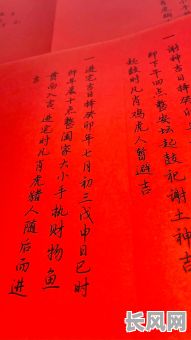 一谢神吉日择癸卯
卯下午四点整安坛起鼓祀谢土神吉
起鼓时凡肖鸡虎人暂避吉
一进宅吉日择癸卯年七月初三戊申日巳时
即早晨十点整阖家大小手执财物鱼
贵而入宅进宅时凡肖虎猪人随后而进
吉
长风网